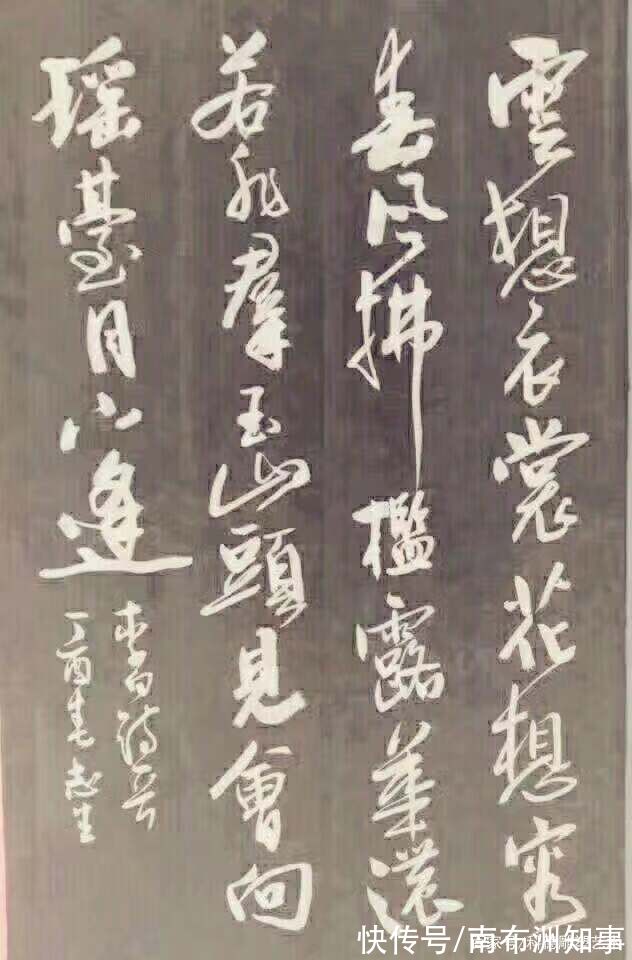 雲想衣裳花想容
春風拂檻露華濃
若非羣玉山頭見會向
瑶臺月下逢
李白詩
丁酉春志生
快传号/南布洲知事